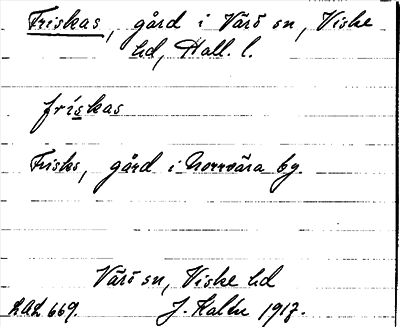 Friskas, gård i Värö sn, Viske
hd, Hall. l.
friskas
Frisks, gård i Norrvära by.
Värö sn, Viske hd
LAL 669. J. Kalén 1917.